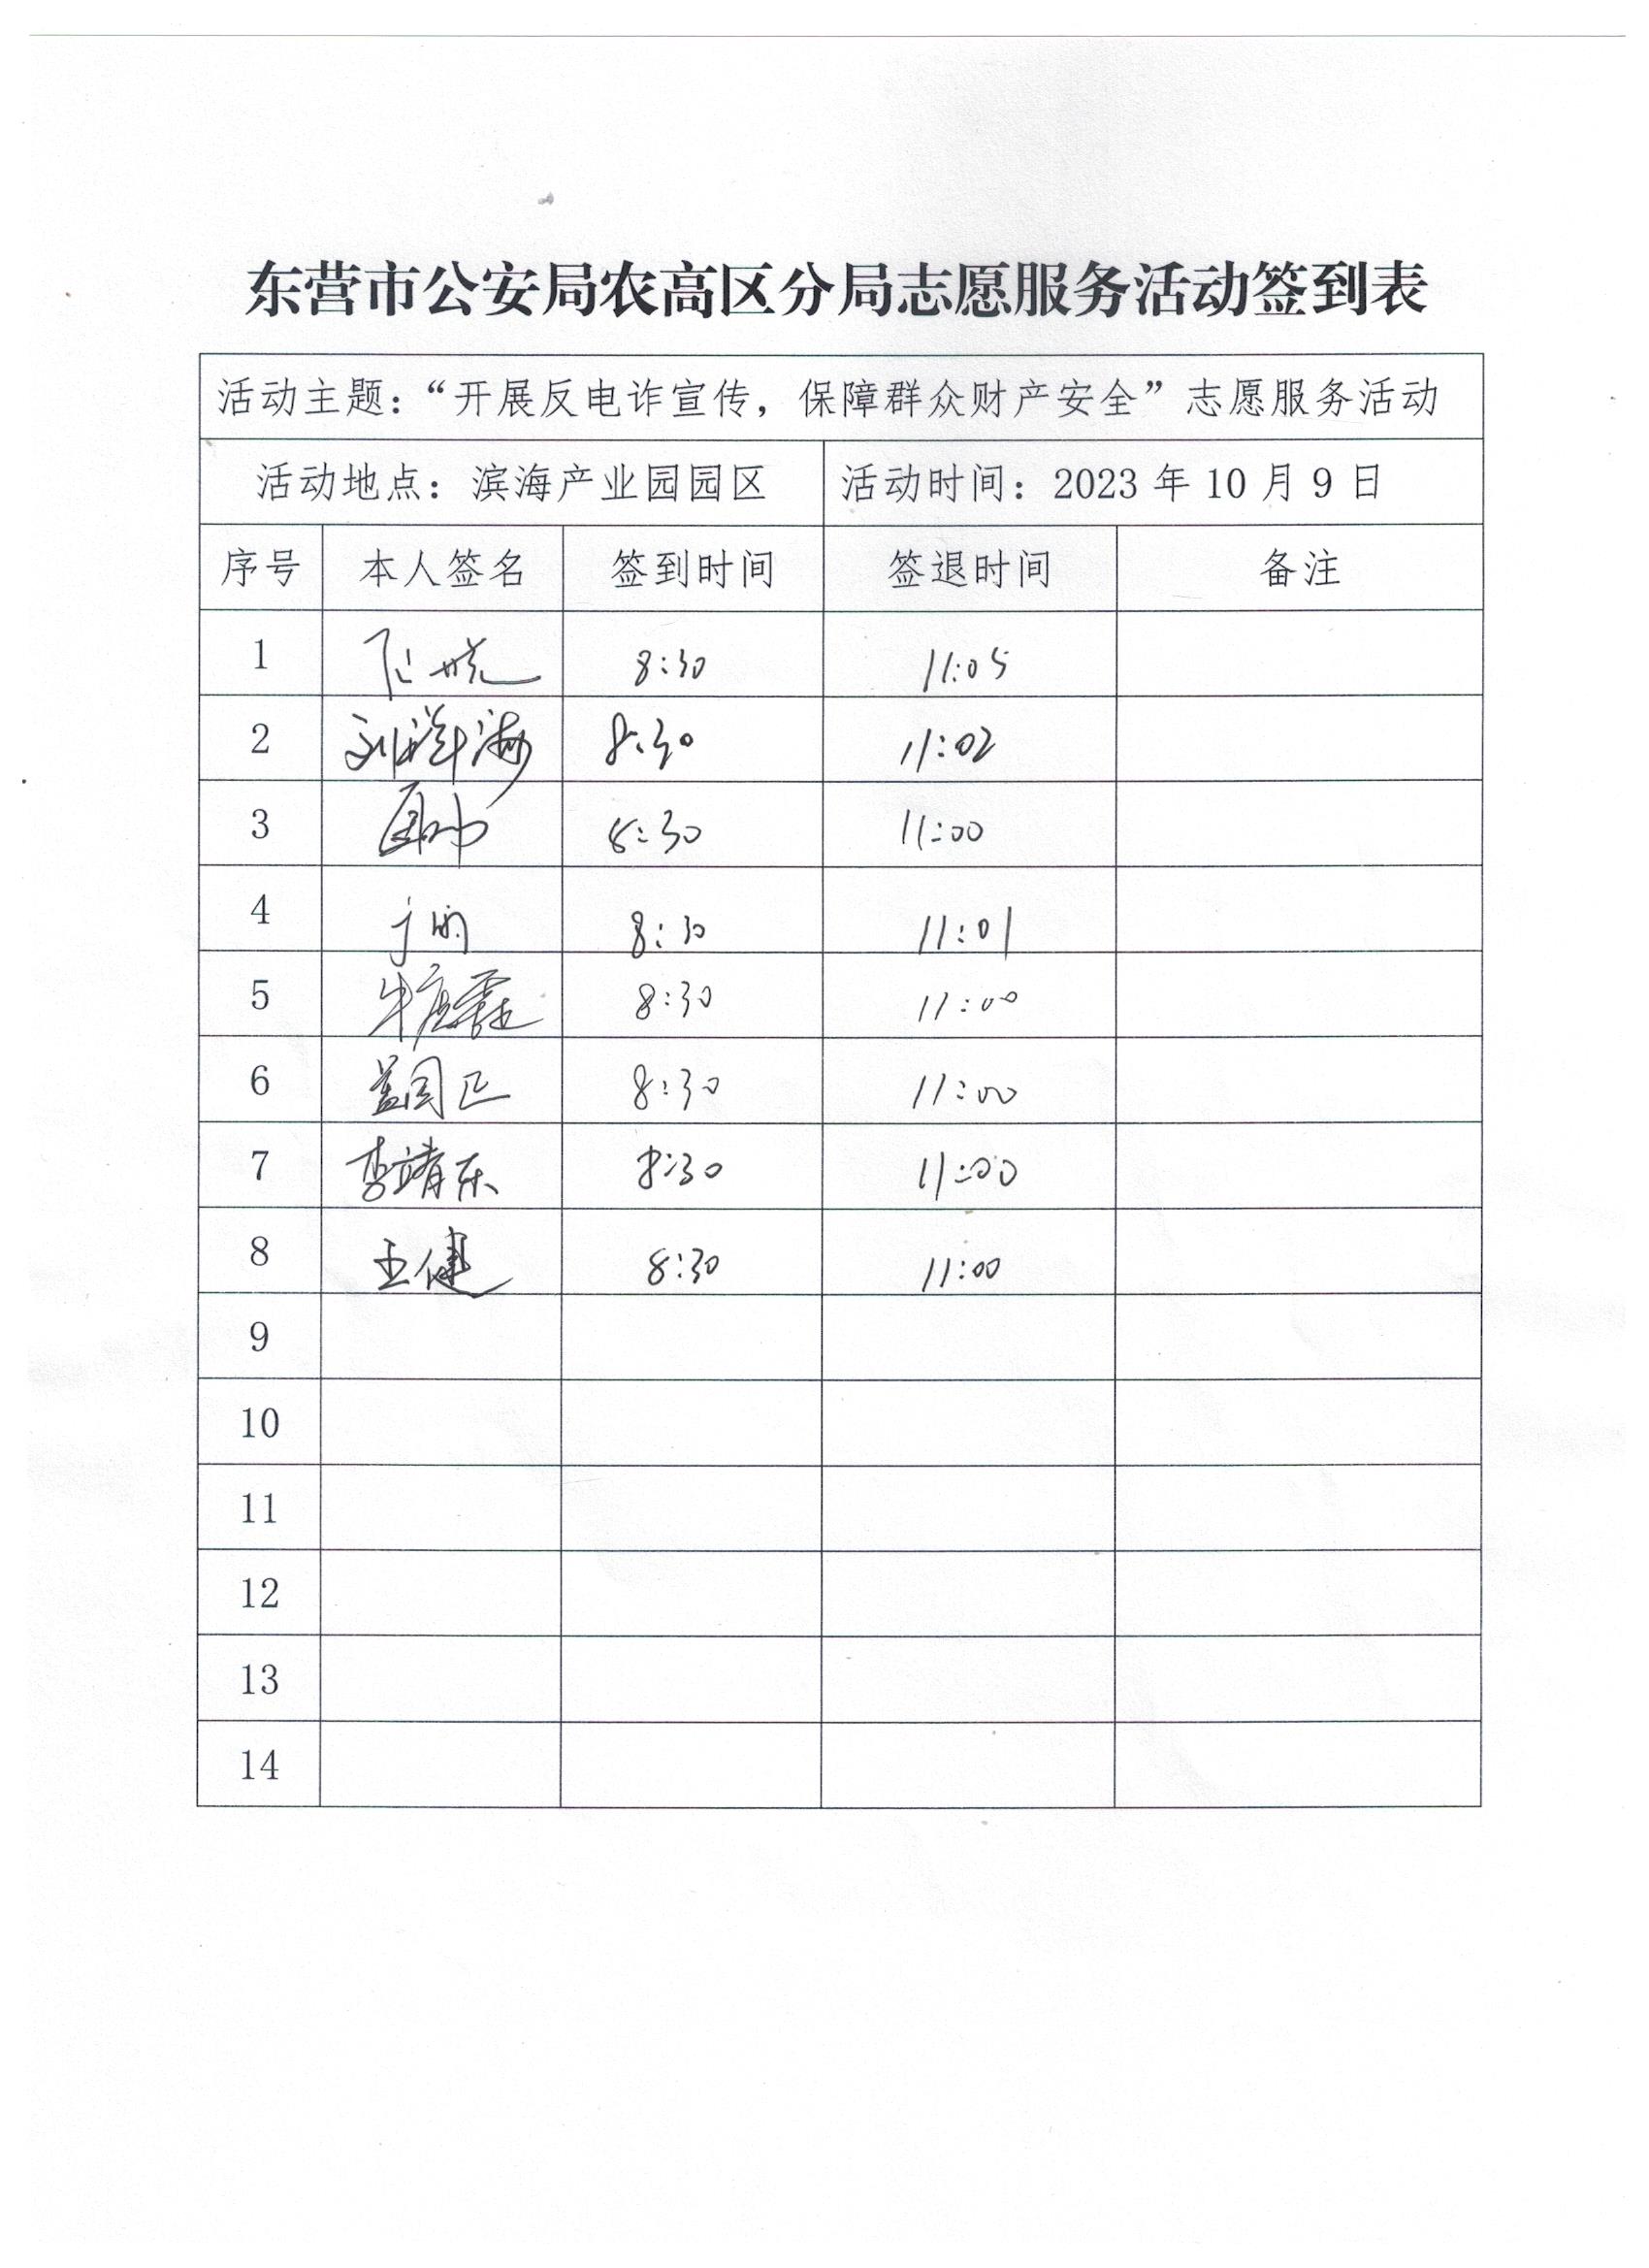 东营市公安局农高区分局志愿服务活动签到表
活动主题：“开展反电诈宣传，保障群众财产安全”志愿服务活动
活动地点：滨海产业园园区 活动时间：2023年10月9日
序号 本人签名 签到时间 签退时间 备注
1 8:30 11:05
2 刘洋海 8:30 11:02
3 8:30 11:00
4 8:30 11:01
5 8:30 11:00
6 盖园区 8:30 11:00
7 李靖东 8:30 11:00
8 王健 8:30 11:00
9
10
11
12
13
14